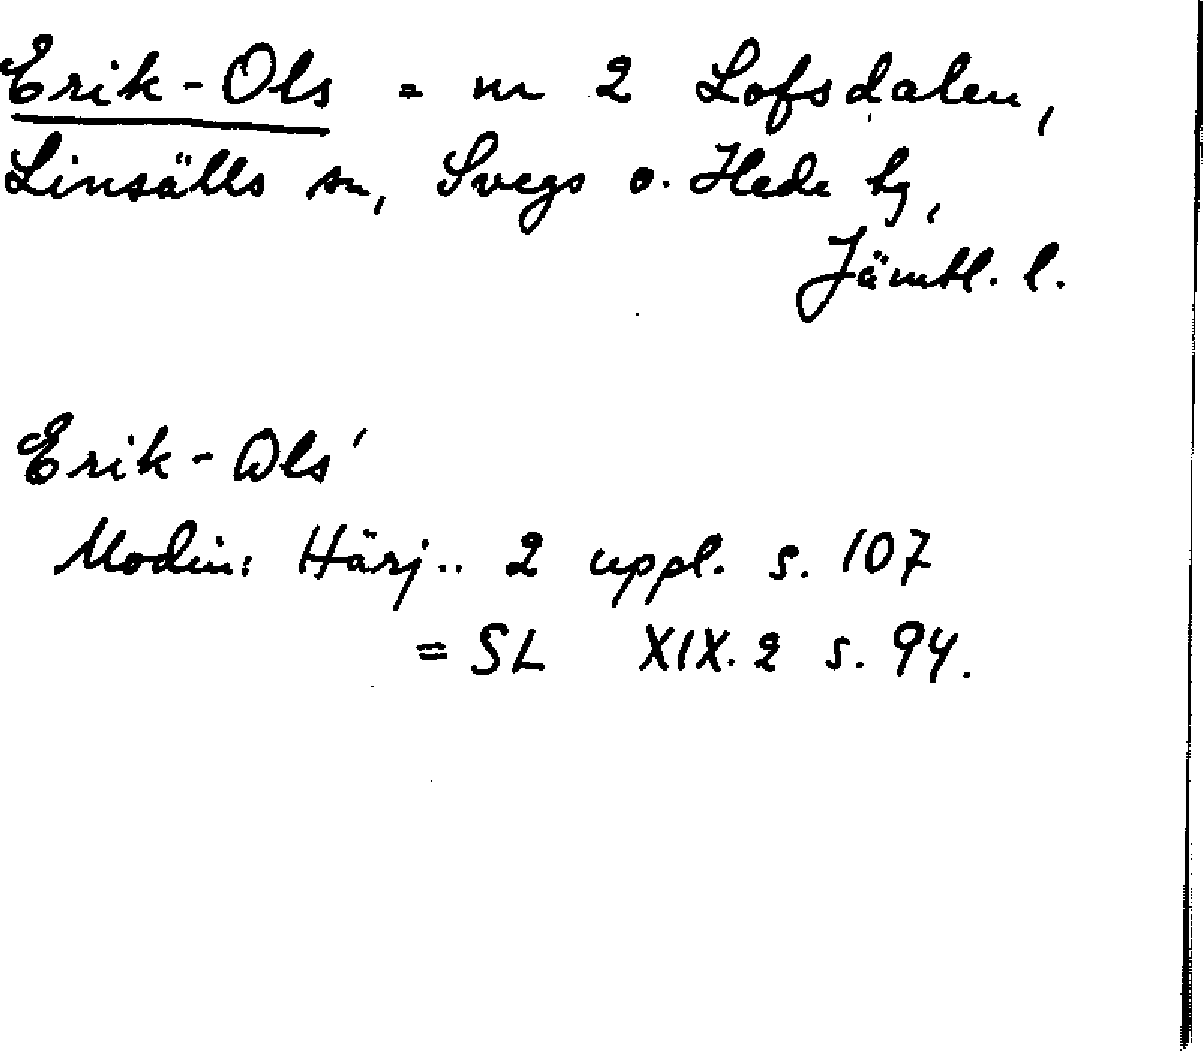 Erik-Ols = nr 2 Lofsdalen,
Linsälls sn, Svegs o. Hede hg,
Jämtl. l.
Erik-Ols'
Modin: Härj.. 2 uppl. s. 107
= SL XIX. 2 s. 94.